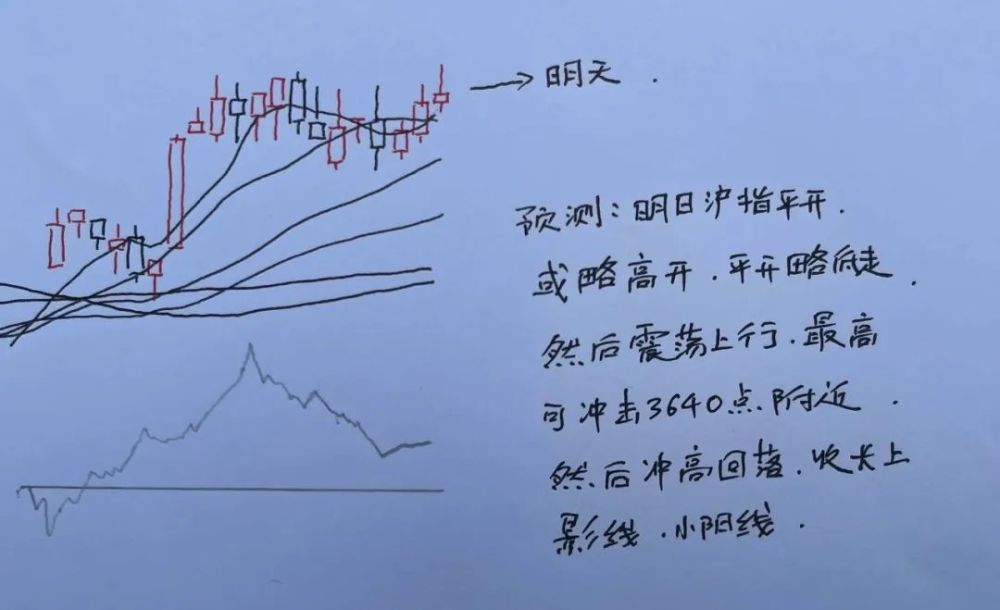 明天.
预测：明日沪指平开.
或略高开.平开略低走.
然后震荡上行.最高
可冲击3640点附近.
然后冲高回落.收长上
影线.小阳线.